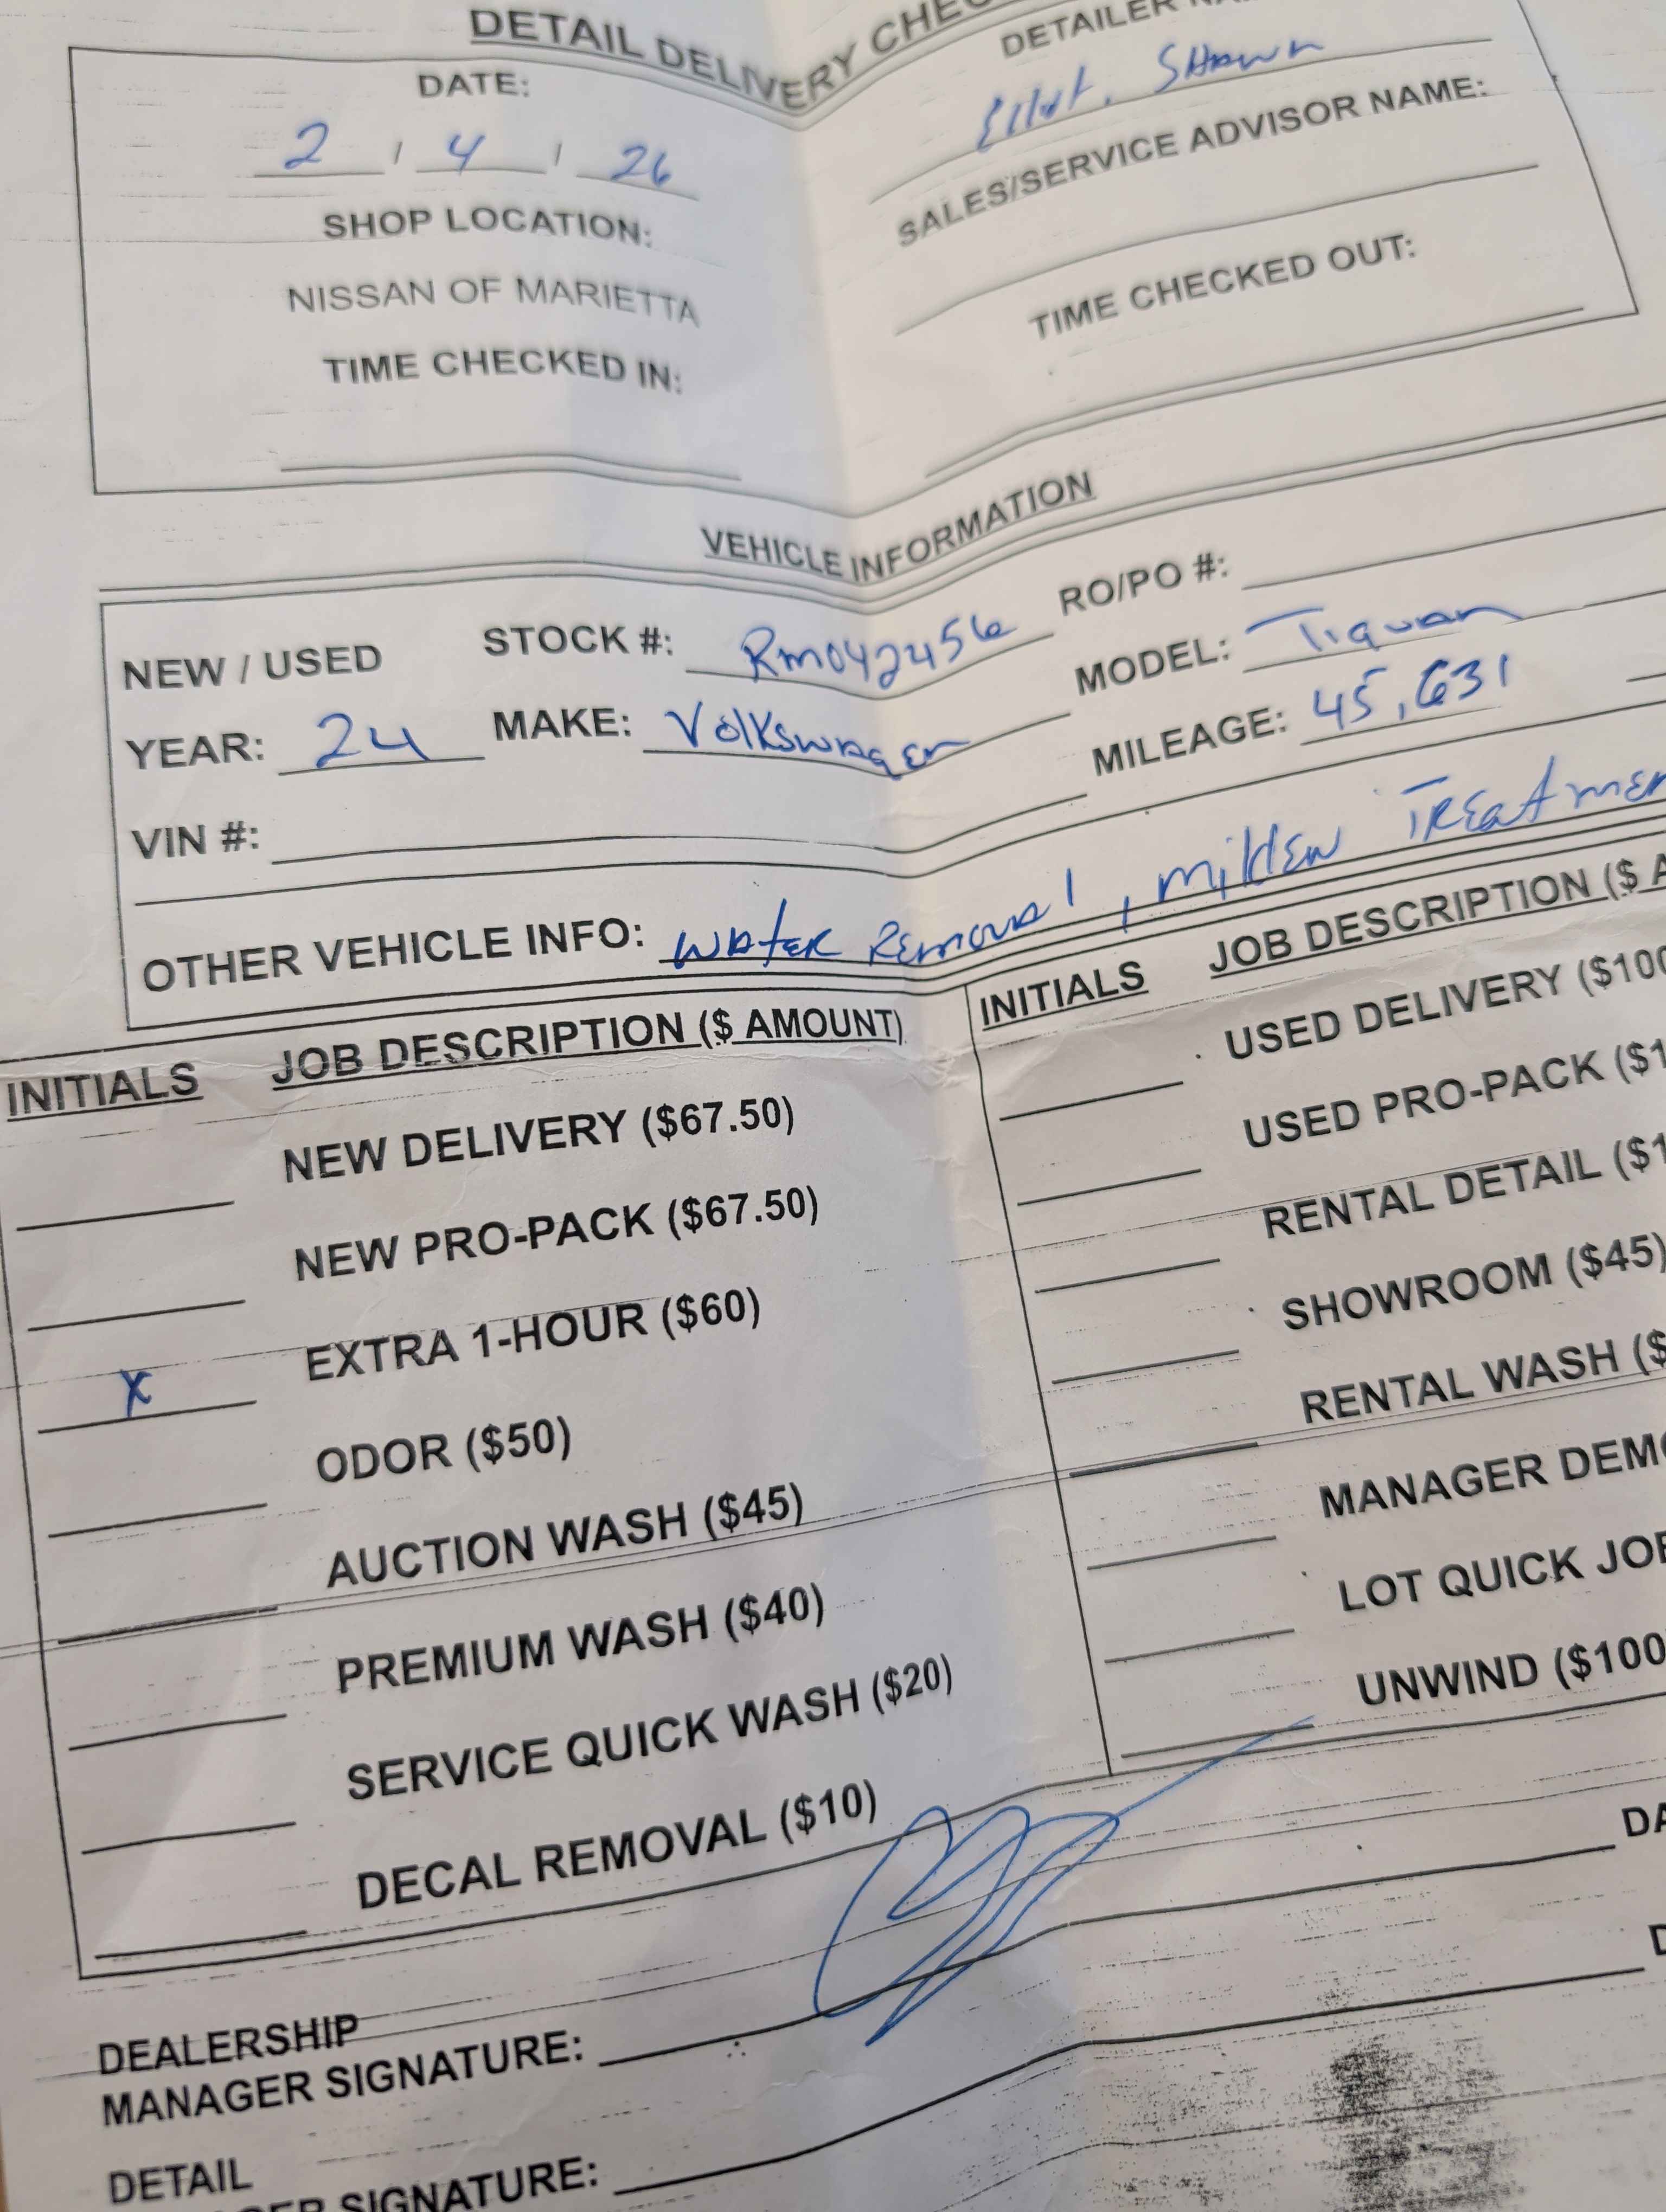 DETAIL DELIVERY
DETAILER
DATE:
Elliot, Shawn
2 / 4 / 26
SALES/SERVICE ADVISOR NAME:
SHOP LOCATION:
NISSAN OF MARIETTA
TIME CHECKED OUT:
TIME CHECKED IN:
VEHICLE INFORMATION
NEW / USED STOCK #: RM042456 RO/PO #:
YEAR: 24 MAKE: Volkswagen MODEL: Tiguan
VIN #: MILEAGE: 45,631
OTHER VEHICLE INFO: Water Removal, Mildew
INITIALS JOB DESCRIPTION ($ AMOUNT)
NEW DELIVERY ($67.50)
NEW PRO-PACK ($67.50)
X EXTRA 1-HOUR ($60)
ODOR ($50)
AUCTION WASH ($45)
PREMIUM WASH ($40)
SERVICE QUICK WASH ($20)
DECAL REMOVAL ($10)
INITIALS JOB DESCRIPTION ($
USED DELIVERY ($100
USED PRO-PACK ($1
RENTAL DETAIL ($1
SHOWROOM ($45)
RENTAL WASH ($
MANAGER DEMO
LOT QUICK JOB
UNWIND ($100
DEALERSHIP
MANAGER SIGNATURE:
DETAIL
SIGNATURE: